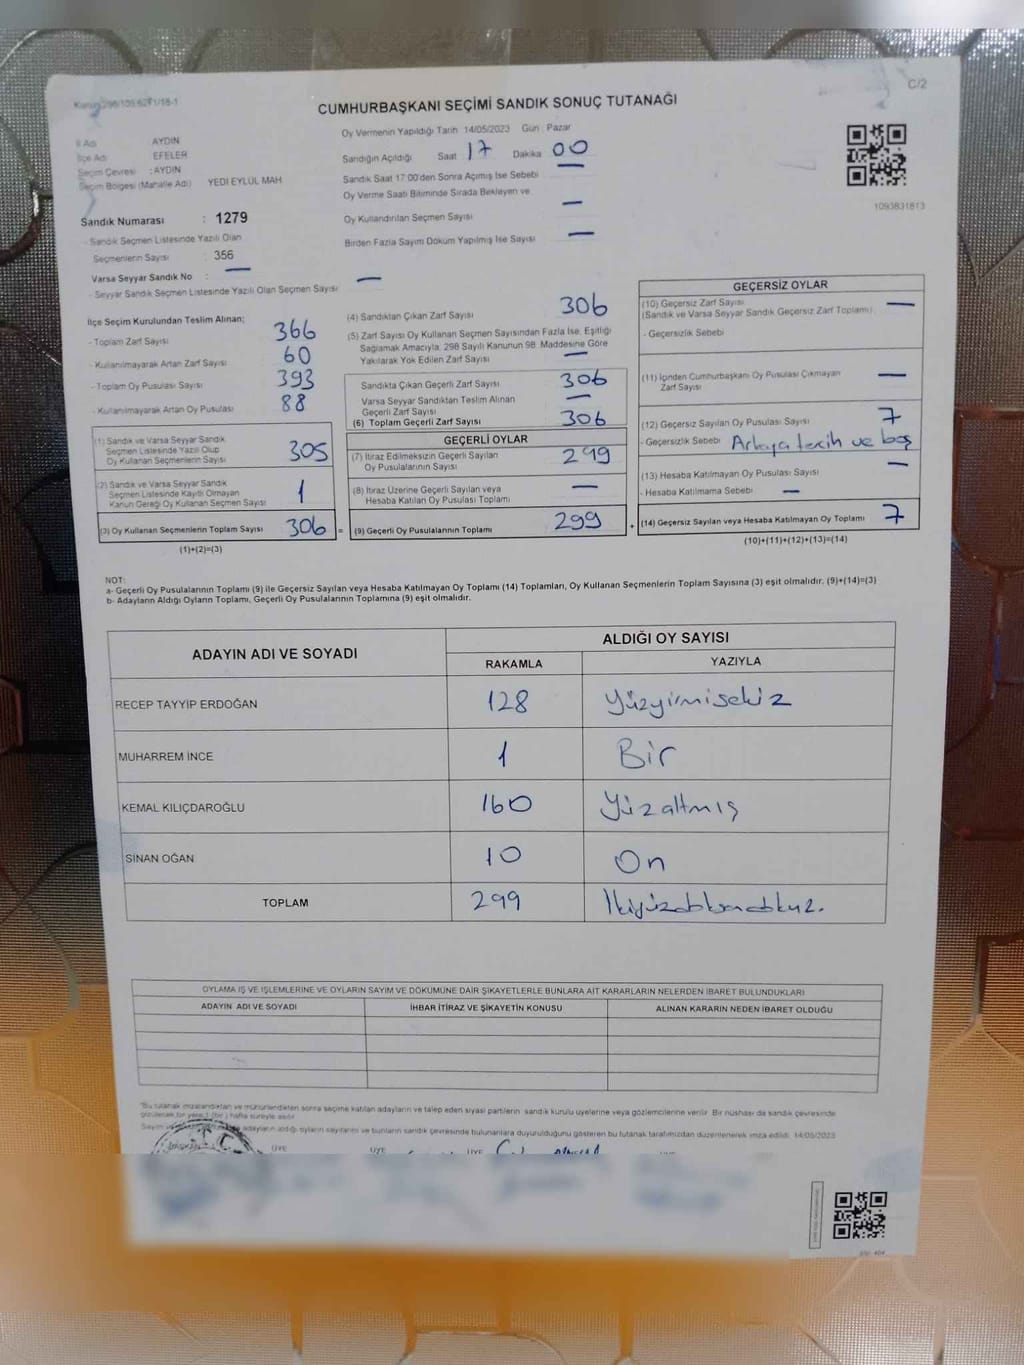 C/2
CUMHURBAŞKANI SEÇİMİ SANDIK SONUÇ TUTANAĞI
İl Adı AYDIN
İlçe Adı EFELER
Seçim Çevresi : AYDIN
Seçim Bölgesi (Mahalle Adı) YEDİ EYLÜL MAH
Sandık Numarası : 1279
- Sandık Seçmen Listesinde Yazılı Olan
Seçmenlerin Sayısı : 356
Varsa Seyyar Sandık No : —
- Seyyar Sandık Seçmen Listesinde Yazılı Olan Seçmen Sayısı —
Oy Vermenin Yapıldığı Tarih 14/05/2023 Gün : Pazar
Sandığın Açıldığı Saat 17 Dakika 00
Sandık Saat 17:00'den Sonra Açımış İse Sebebi —
Oy Verme Saati Bitiminde Sırada Bekleyen ve
Oy Kullandırılan Seçmen Sayısı —
Birden Fazla Sayım Döküm Yapılmış İse Sayısı —
1093831813
İlçe Seçim Kurulundan Teslim Alınan;
- Toplam Zarf Sayısı 366
- Kullanılmayarak Artan Zarf Sayısı 60
- Toplam Oy Pusulası Sayısı 393
- Kullanılmayarak Artan Oy Pusulası 88
(1) Sandık ve Varsa Seyyar Sandık
Seçmen Listesinde Yazılı Olup
Oy Kullanan Seçmenlerin Sayısı 305
(2) Sandık ve Varsa Seyyar Sandık
Seçmen Listesinde Kayıtlı Olmayan
Kanun Gereği Oy Kullanan Seçmen Sayısı 1
(3) Oy Kullanan Seçmenlerin Toplam Sayısı 306 =
(1)+(2)=(3)
(4) Sandıktan Çıkan Zarf Sayısı 306
(5) Zarf Sayısı Oy Kullanan Seçmen Sayısından Fazla İse, Eşitliği
Sağlamak Amacıyla, 298 Sayılı Kanunun 98. Maddesine Göre
Yakılarak Yok Edilen Zarf Sayısı —
Sandıkta Çıkan Geçerli Zarf Sayısı 306
Varsa Seyyar Sandıktan Teslim Alınan
Geçerli Zarf Sayısı —
(6) Toplam Geçerli Zarf Sayısı 306
GEÇERLİ OYLAR
(7) İtiraz Edilmeksizin Geçerli Sayılan
Oy Pusulalarının Sayısı 299
(8) İtiraz Üzerine Geçerli Sayılan veya
Hesaba Katılan Oy Pusulası Toplamı —
(9) Geçerli Oy Pusulalarının Toplamı 299 +
GEÇERSİZ OYLAR
(10) Geçersiz Zarf Sayısı —
(Sandık ve Varsa Seyyar Sandık Geçersiz Zarf Toplamı)
- Geçersizlik Sebebi
(11) İçinden Cumhurbaşkanı Oy Pusulası Çıkmayan
Zarf Sayısı —
(12) Geçersiz Sayılan Oy Pusulası Sayısı 7
- Geçersizlik Sebebi Arkaya tercih ve boş
(13) Hesaba Katılmayan Oy Pusulası Sayısı —
- Hesaba Katılmama Sebebi —
(14) Geçersiz Sayılan veya Hesaba Katılmayan Oy Toplamı 7
(10)+(11)+(12)+(13)=(14)
NOT:
a- Geçerli Oy Pusulalarının Toplamı (9) ile Geçersiz Sayılan veya Hesaba Katılmayan Oy Toplamı (14) Toplamları, Oy Kullanan Seçmenlerin Toplam Sayısına (3) eşit olmalıdır. (9)+(14)=(3)
b- Adayların Aldığı Oyların Toplamı, Geçerli Oy Pusulalarının Toplamına (9) eşit olmalıdır.
ADAYIN ADI VE SOYADI
ALDIĞI OY SAYISI
RAKAMLA YAZIYLA
RECEP TAYYİP ERDOĞAN 128 Yüzyirmisekiz
MUHARREM İNCE 1 Bir
KEMAL KILIÇDAROĞLU 160 Yüzaltmış
SİNAN OĞAN 10 On
TOPLAM 299 İkiyüzdoksandokuz.
OYLAMA İŞ VE İŞLEMLERİNE VE OYLARIN SAYIM VE DÖKÜMÜNE DAİR ŞİKAYETLERLE BUNLARA AİT KARARLARIN NELERDEN İBARET BULUNDUKLARI
ADAYIN ADI VE SOYADI İHBAR İTİRAZ VE ŞİKAYETİN KONUSU ALINAN KARARIN NEDEN İBARET OLDUĞU
*Bu tutanak imzalandıktan ve mühürlendikten sonra seçime katılan adayların ve talep eden siyasi partilerin sandık kurulu üyelerine veya gözlemcilerine verilir. Bir nüshası da sandık çevresinde
adayların aldığı oyların sayılarını ve bunların sandık çevresinde bulunanlara duyurulduğunu gösteren bu tutanak tarafımızdan düzenlenerek imza edildi. 14/05/2023
ÜYE ÜYE ÜYE